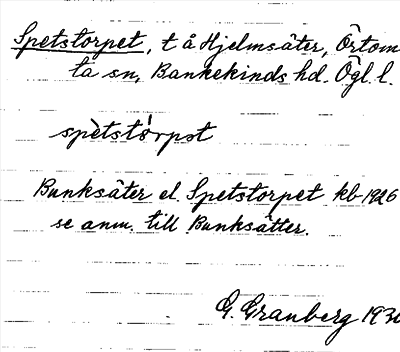 Spetstorpet, t å Hjelmsäter, Örtom
ta sn, Bankekinds hd. Ögl. l.
spètstórpət
Bunksäter el. Spetstorpet kb 1926
se anm. till Bunksätter.
G. Granberg 193